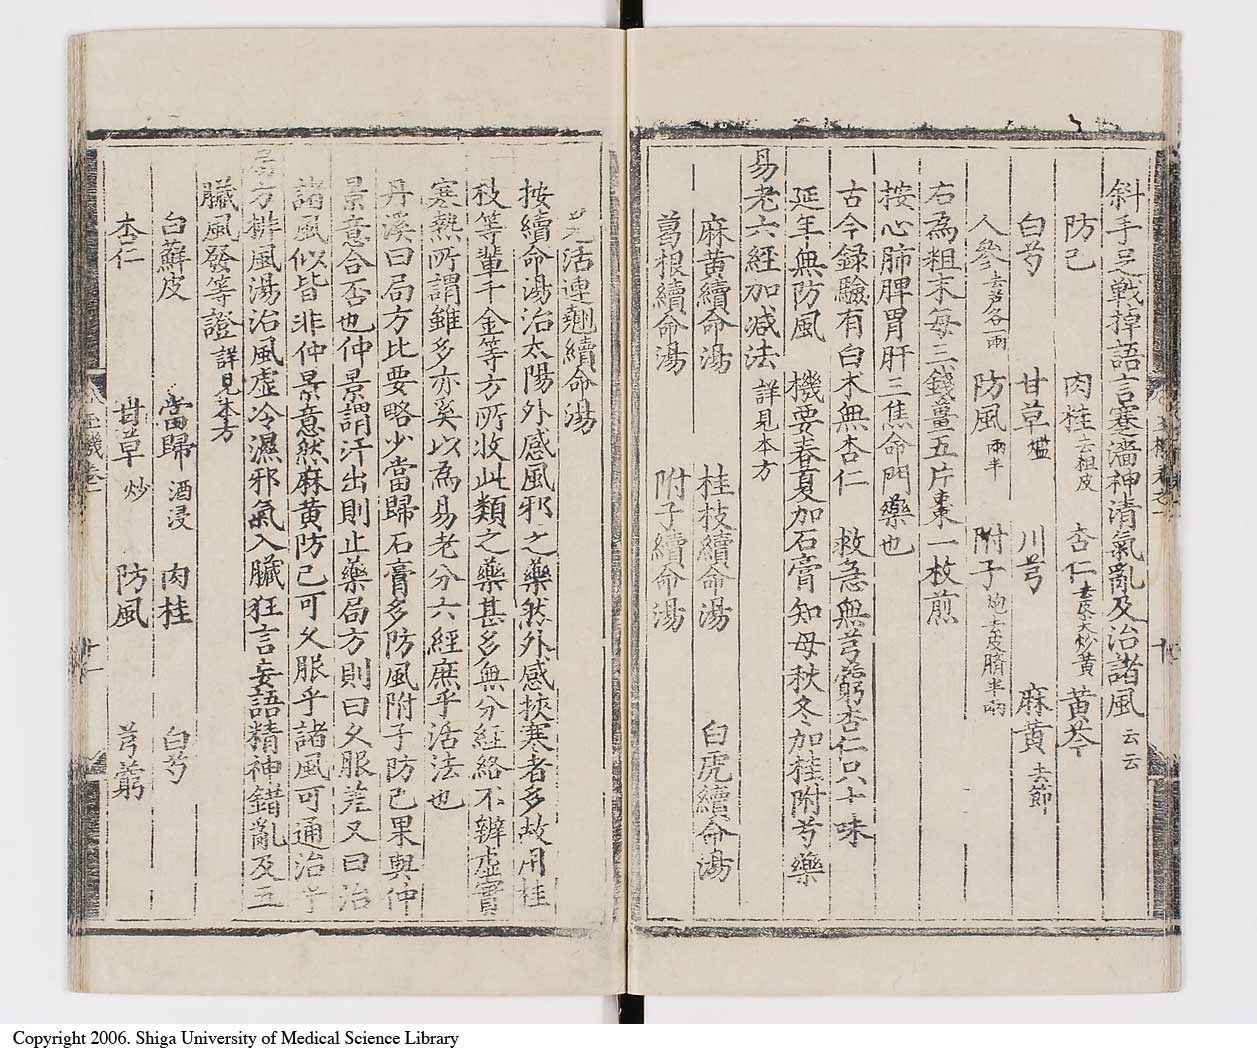 斜手足戰掉語言蹇濇神清氣亂及治諸風云云
防己 肉桂去粗皮 杏仁去皮尖炒黃 黃芩
白芍 甘草爁 川芎 麻黃去節
人參去芦各一兩 防風一兩半 附子炮去皮臍半兩
右為粗末每三錢薑五片棗一枚煎
按心肺脾胃肝三焦命門藥也
古今録驗有白朮無杏仁 救急無芎藭杏仁只十味
延年無防風 機要春夏加石膏知母秋冬加桂附芍藥
易老六經加減法詳見本方
麻黃續命湯 桂枝續命湯 白虎續命湯
葛根續命湯 附子續命湯
羌活連翹續命湯
按續命湯治太陽外感風邪之藥然外感挾寒者多故用桂
枝等輩千金等方所收此類之藥甚多無分經絡不辨虛實
寒熱所謂雖多亦奚以為易老分六經庶乎活法也
丹溪曰局方比要略少當歸石膏多防風附子防己果與仲
景意合否也仲景謂汗出則止藥局方則曰久服差又曰治
諸風似皆非仲景意然麻黃防己可久服乎諸風可通治乎
局方排風湯治風虛冷濕邪氣入臟狂言妄語精神錯亂及五
臟風發等證詳見本方
白蘚皮 當歸酒浸 肉桂 白芍
杏仁 甘草炒 防風 芎藭
Copyright 2006. Shiga University of Medical Science Library